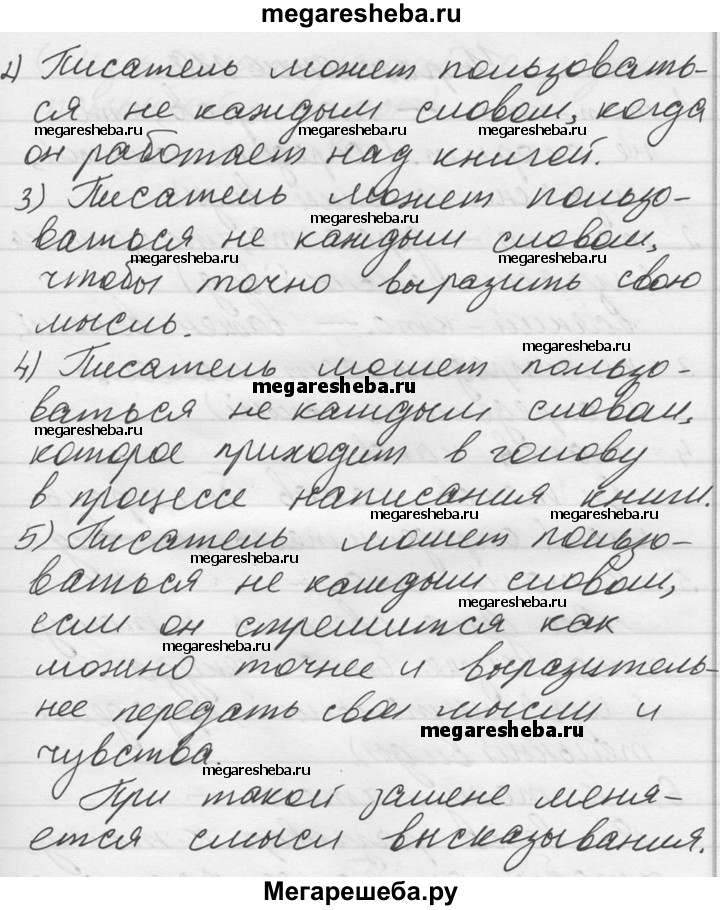 megaresheba.ru
2) Писатель может пользовать-
ся не каждым словом, когда
megaresheba.ru megaresheba.ru megaresheba.ru
он работает над книгей.
3) Писатель может пользо-
megaresheba.ru
ваться не каждым словом,
чтобы точно выразить свою
megaresheba.ru
мысль.
megaresheba.ru
4) Писатель может пользо-
megaresheba.ru
ваться не каждым словом,
megaresheba.ru
которое приходит в голову
в процессе написания книги.
megaresheba.ru megaresheba.ru
5) Писатель может пользо-
megaresheba.ru
ваться не каждым словом,
megaresheba.ru
если он стремится как
megaresheba.ru
можно точнее и выразитель-
нее передать свои мысли и
megaresheba.ru
чувства.
megaresheba.ru
При такой замене меня-
ется смысл высказывания.
Мегарешеба.ру